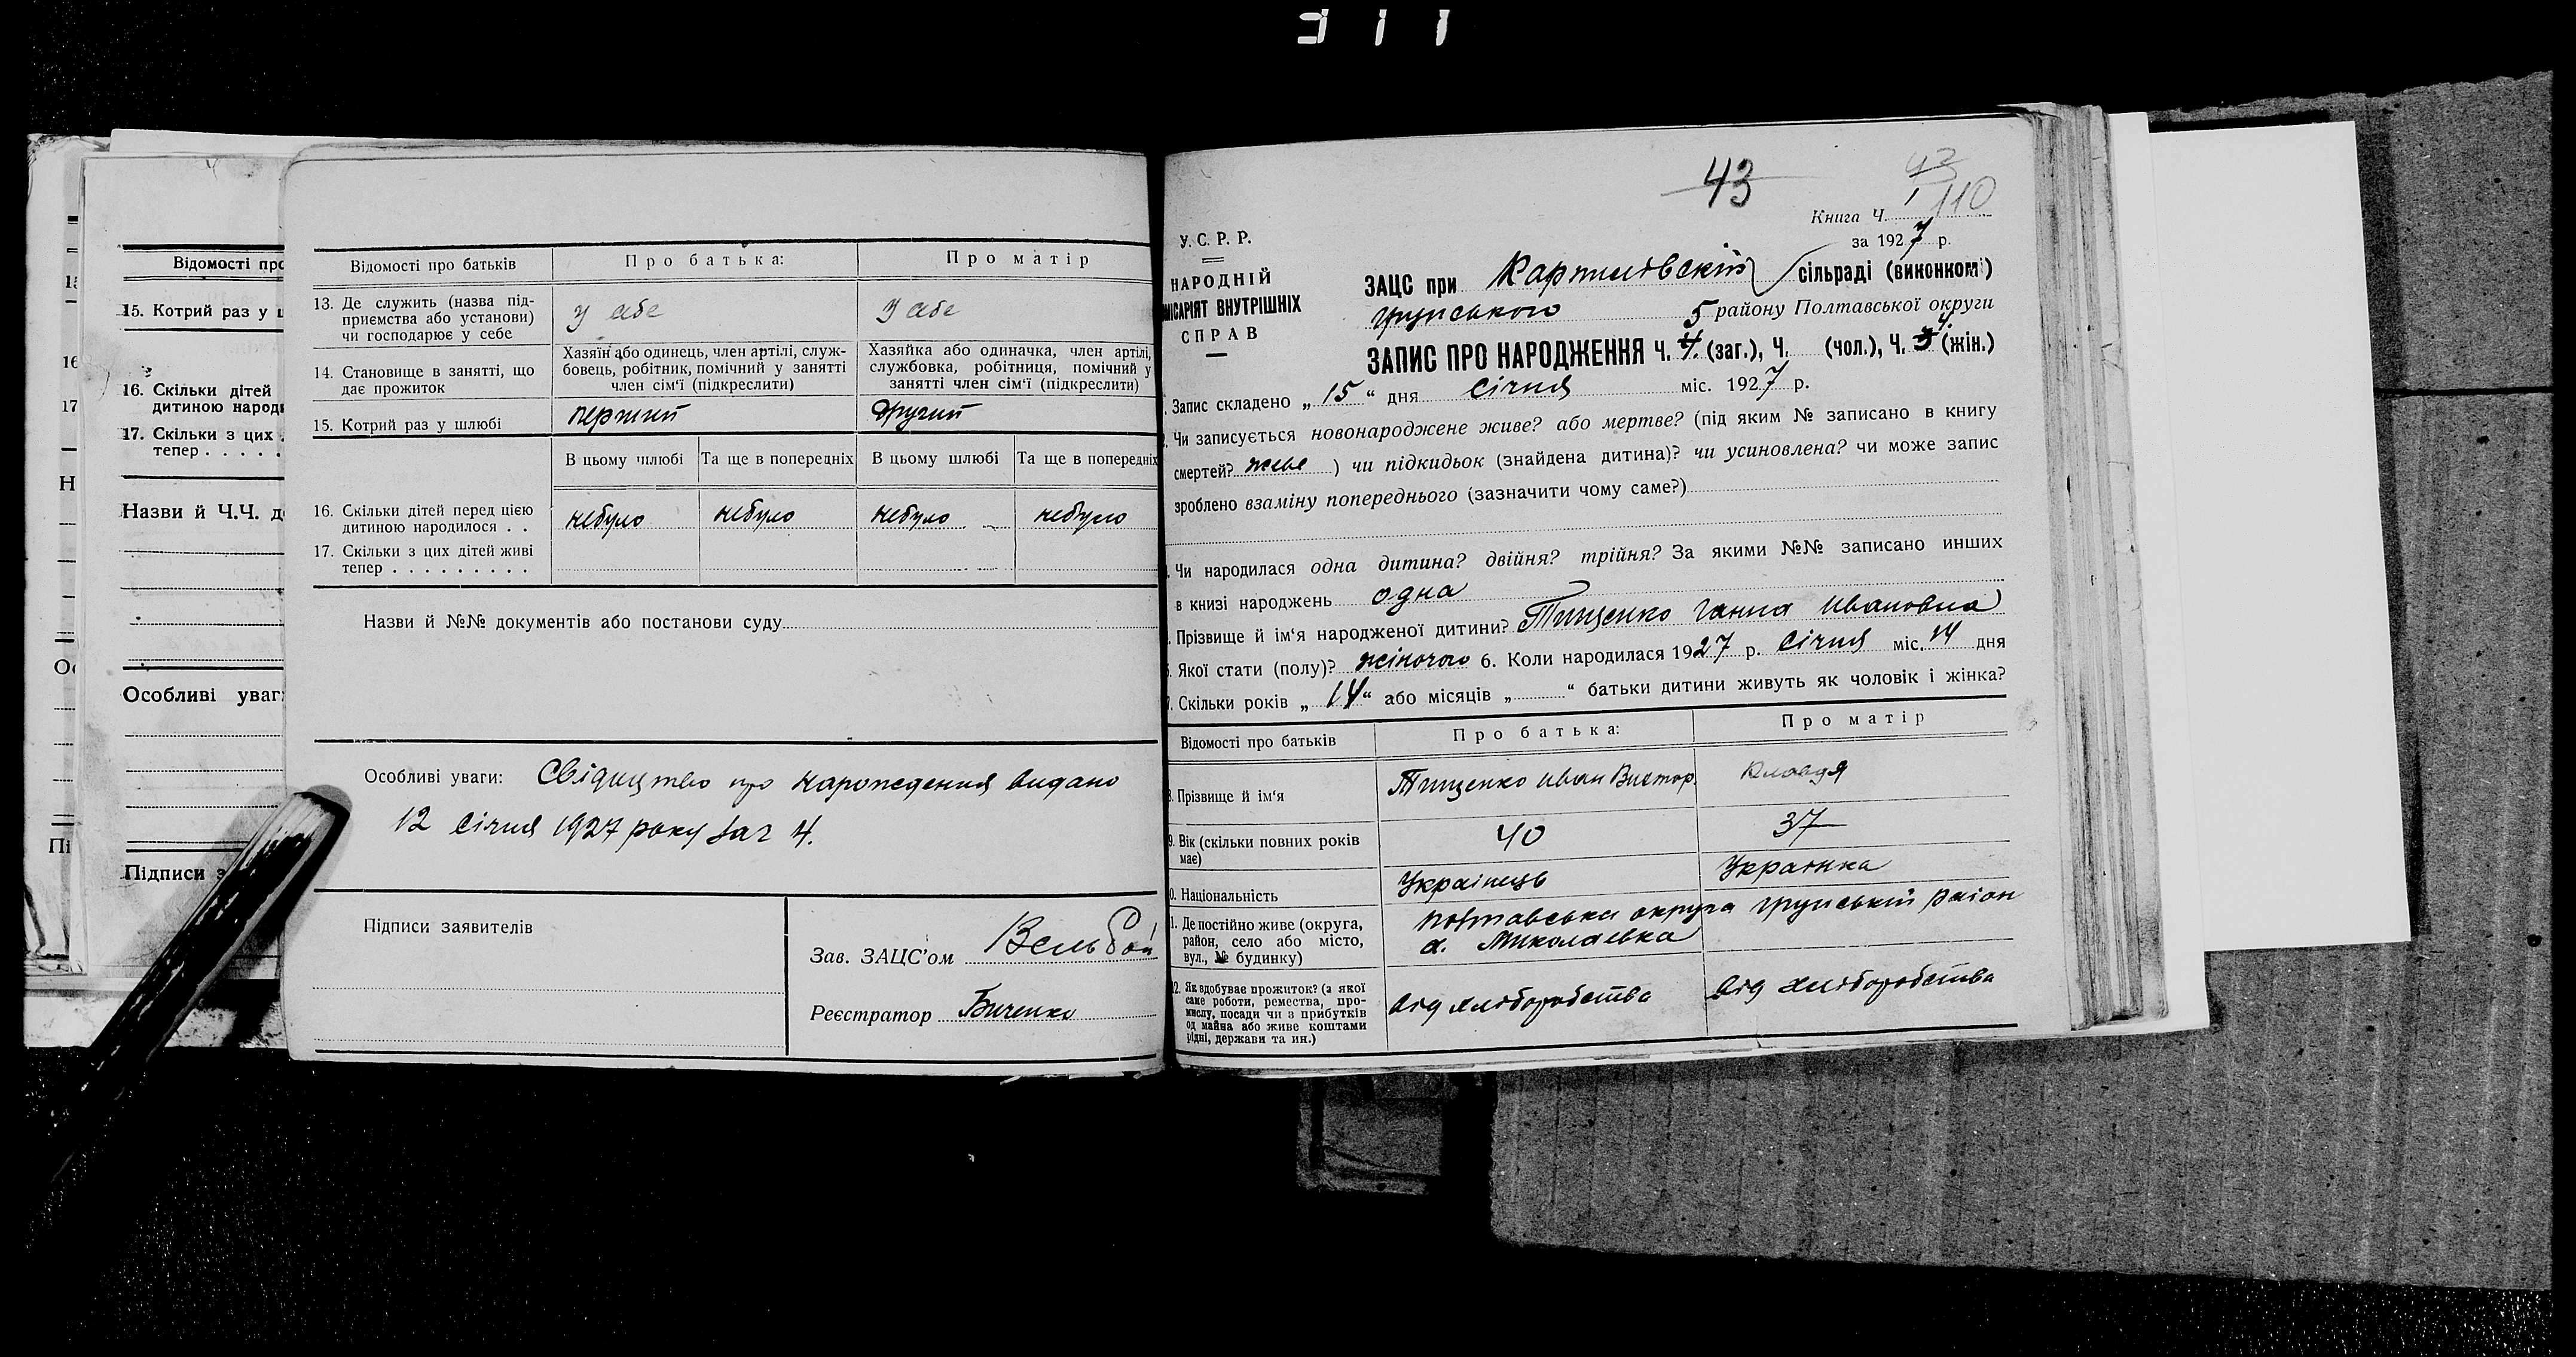 311
Відомості про
15. Котрий раз у ш
16. Скільки дітей
дитиною народ
17. Скільки з цих
тепер . . . . .
Назви й Ч.Ч. д
Особливі уваг
Підписи з
Відомості про батьків
Про батька:
Про матір
13. Де служить (назва під-
приємства або установи)
чи господарює у себе
у себе
у себе
14. Становище в занятті, що
дає прожиток
Хазяїн або одинець, член артілі, служ-
бовець, робітник, помічний у занятті
член сім'ї (підкреслити)
Хазяйка або одиначка, член артілі,
службовка, робітниця, помічний у
занятті член сім'ї (підкреслити)
15. Котрий раз у шлюбі
перший
другий
В цьому шлюбі
Та ще в попередніх
В цьому шлюбі
Та ще в попередніх
16. Скільки дітей перед цією
дитиною народилося . .
небуло
небуло
небуло
небуло
17. Скільки з цих дітей живі
тепер . . . . . . . . .
Назви й №№ документів або постанови суду
Особливі уваги: Свідицтво про народження видано
12 січня 1927 року за ч 4.
Підписи заявителів
Зав. ЗАЦС'ом
Реєстратор Биченко
43
43
1 110
Книга Ч.
за 1927 р.
У. С. Р. Р.
НАРОДНІЙ
МІСАРІЯТ ВНУТРІШНІХ
СПРАВ
ЗАЦС при сільраді (виконком)
грунського району Полтавської округи
ЗАПИС ПРО НАРОДЖЕННЯ Ч. 5 (заг.), Ч. (чол.), Ч. 4 (жін.)
Запис складено „15" дня січня міс. 1927 р.
Чи записується новонароджене живе? або мертве? (під яким № записано в книгу
смертей? живе ) чи підкидьок (знайдена дитина)? чи усиновлена? чи може запис
зроблено взаміну попереднього (зазначити чому саме?)
Чи народилася одна дитина? двійня? трійня? За якими №№ записано инших
в книзі народжень одна
Прізвище й ім'я народженої дитини? Тищенко Ганна Ивановна
Якої стати (полу)? жіночого 6. Коли народилася 1927 р. січня міс. 14 дня
Скільки років „14" або місяців „ " батьки дитини живуть як чоловік і жінка?
Відомості про батьків
Про батька:
Про матір
8. Прізвище й ім'я
Тищенко Иван Виктор.
Клавдя
9. Вік (скільки повних років
має)
40
37
0. Національність
Українець
Украінка
1. Де постійно живе (округа,
район, село або місто,
вул., № будинку)
полтавська округа грунській раіон
х. Миколаевка
2. Як здобуває прожиток? (з якої
саме роботи, ремества, про-
мислу, посади чи з прибутків
од майна або живе коштами
рідні, держави та ин.)
від хліборобства
від хліборобства